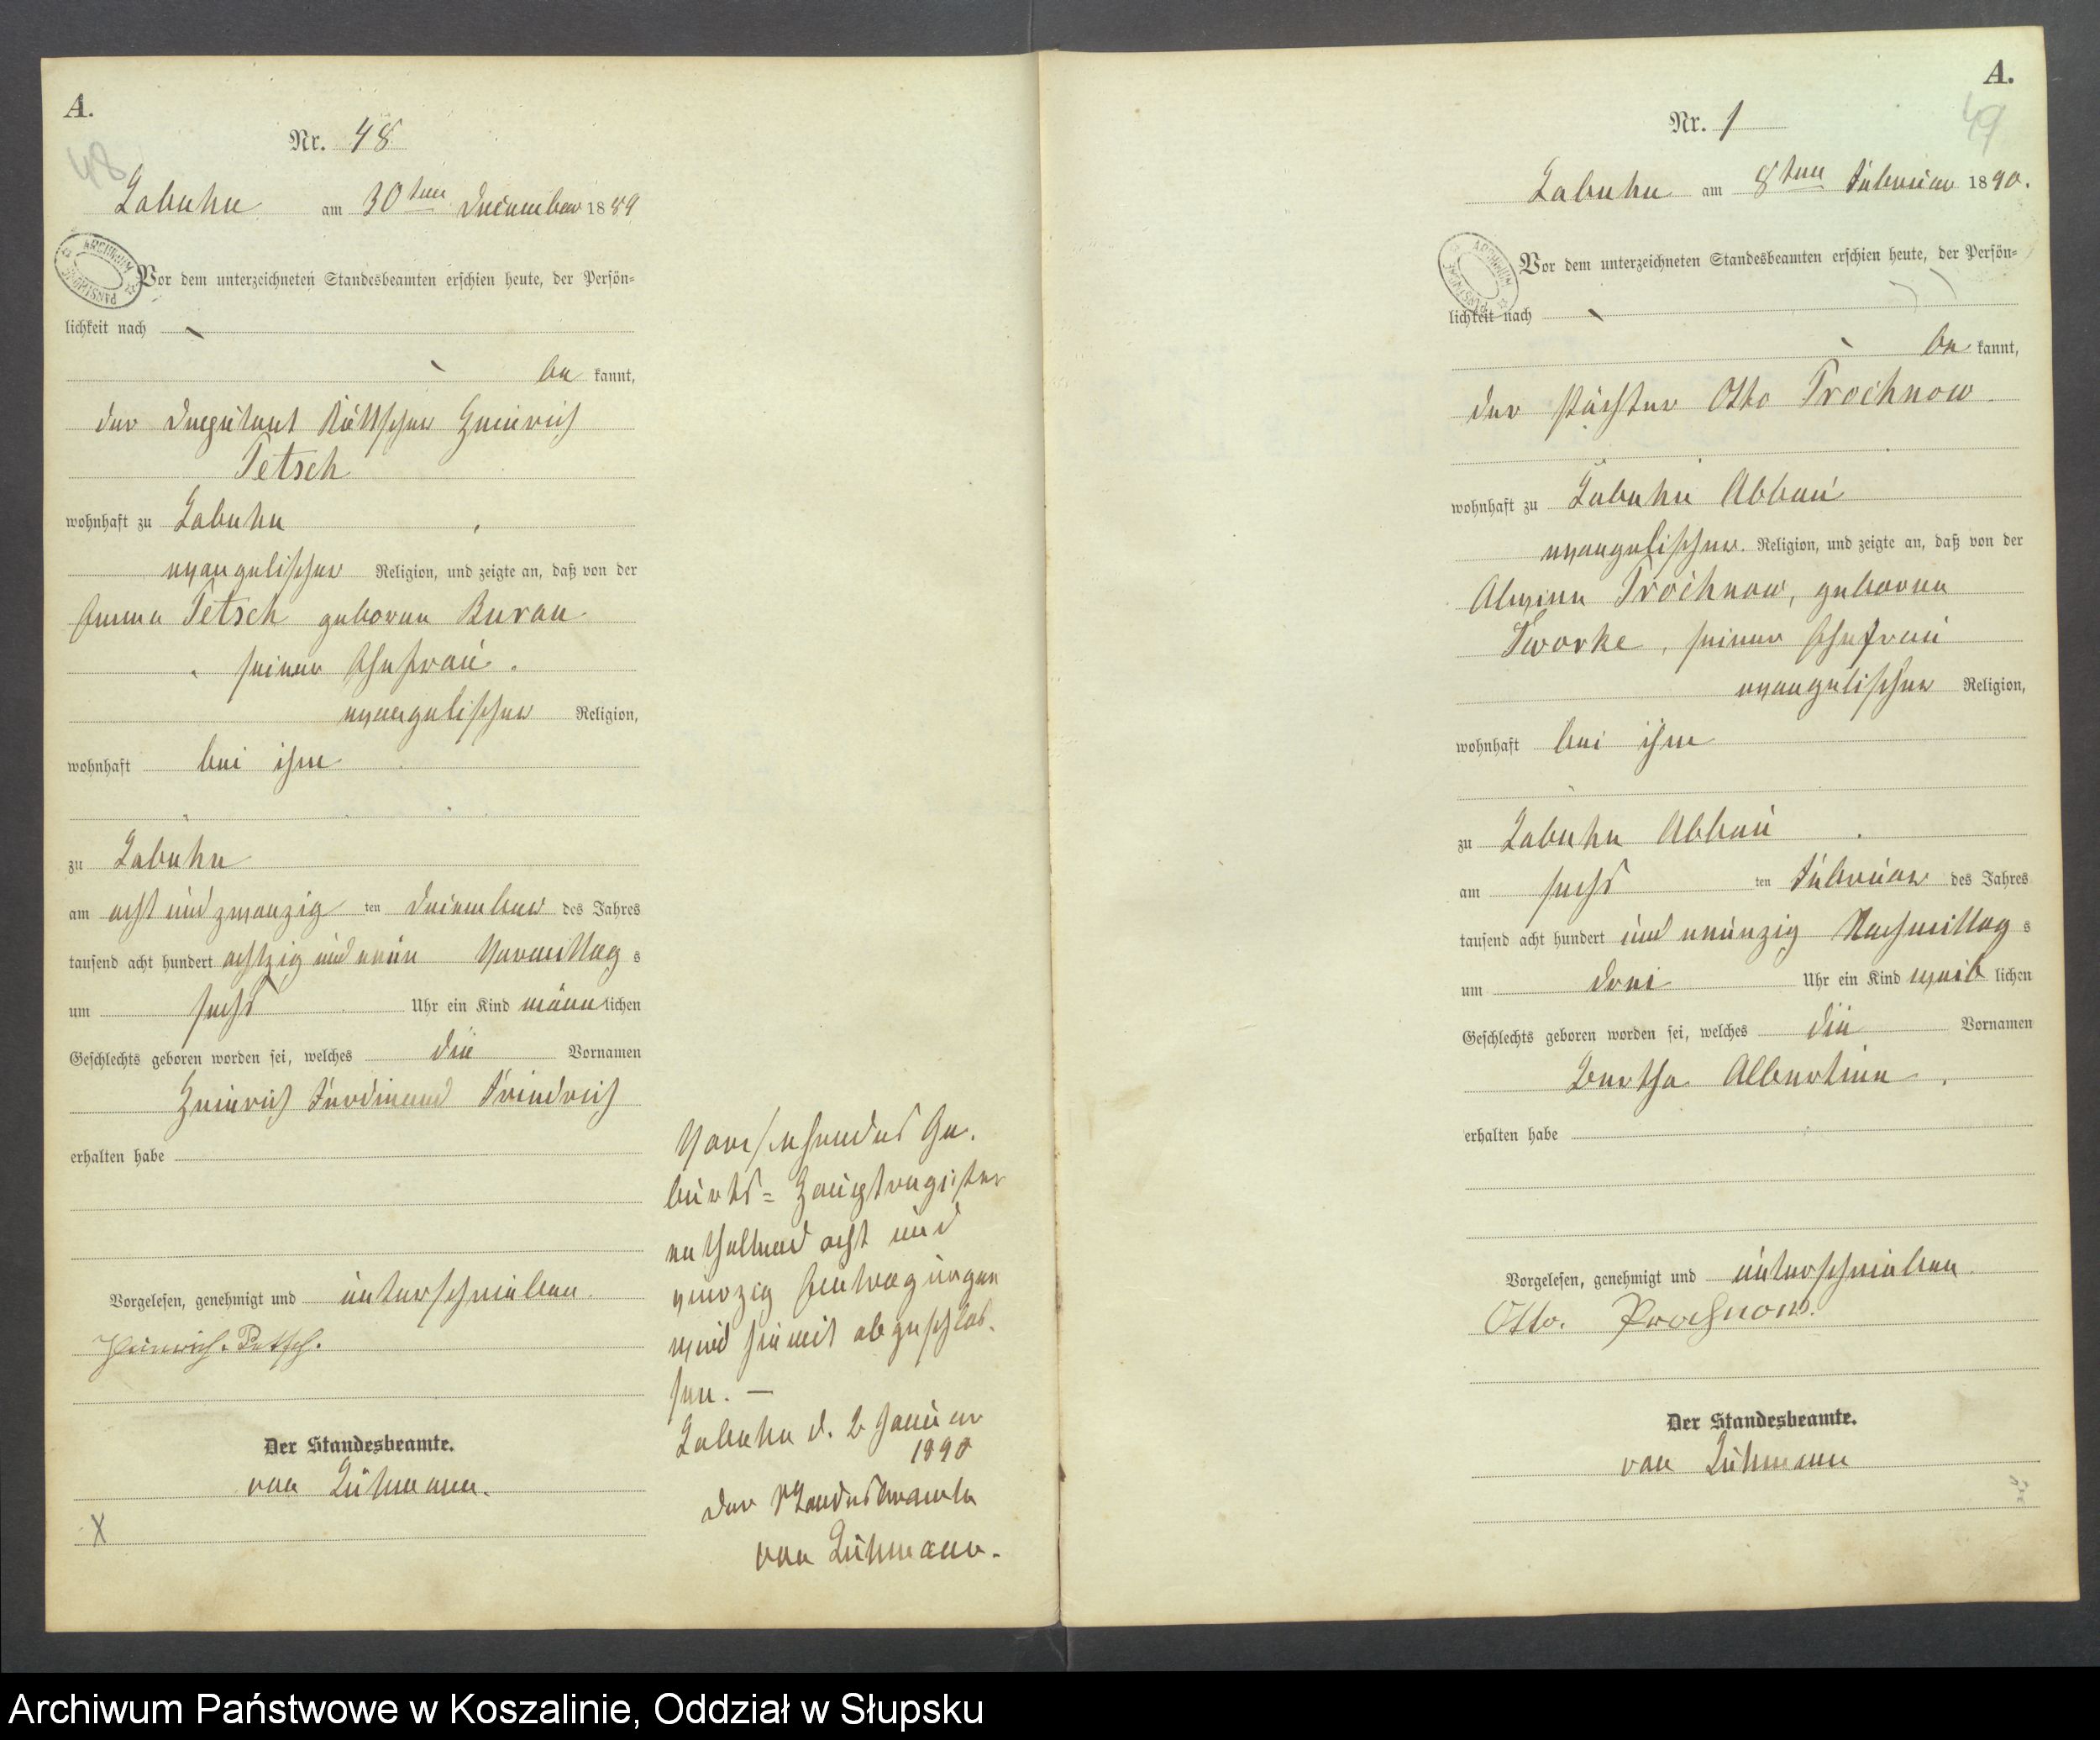 A.
48
Nr. 48
Labuhn am 30ten December 1889
Vor dem unterzeichneten Standesbeamten erschien heute, der Persön=
lichkeit nach
be kannt,
der Deputant Büttcher Heinrich
Petsch
wohnhaft zu Labuhn
evangelischer Religion, und zeigte an, daß von der
Emma Petsch geborene Buran
seiner Ehefrau.
evangelischer Religion,
wohnhaft bei ihm
zu Labuhn
am acht und zwanzig ten December des Jahres
tausend acht hundert achtzig und neun Vormittag s
um sechs Uhr ein Kind männ lichen
Geschlechts geboren worden sei, welches die Vornamen
Heinrich Ferdinand Friedrich
erhalten habe
Vorgelesen, genehmigt und unterschrieben.
Heinrich. Petsch.
Der Standesbeamte.
von Lühmann.
X
Vorstehendes Ge-
burts= Hauptregister
enthaltend acht und
vierzig Eintragungen
wird hiermit abgeschlos-
sen. —
Labuhn d. 2 Januar
1890
Der Standesbeamte
von Lühmann.
A.
49
Nr. 1
Labuhn am 8ten Februar 1890.
Vor dem unterzeichneten Standesbeamten erschien heute, der Persön=
lichkeit nach
be kannt,
der Pächter Otto Prochnow
wohnhaft zu Labuhn Abbau
evangelischer Religion, und zeigte an, daß von der
Alwine Prochnow, geborene
Tworke, seiner Ehefrau
evangelischer Religion,
wohnhaft bei ihm
zu Labuhn Abbau
am sechs ten Februar des Jahres
tausend acht hundert und neunzig Nachmittag s
um drei Uhr ein Kind weib lichen
Geschlechts geboren worden sei, welches die Vornamen
Bertha Albertine
erhalten habe
Vorgelesen, genehmigt und unterschrieben.
Otto. Prochnow.
Der Standesbeamte.
von Lühmann
Archiwum Państwowe w Koszalinie, Oddział w Słupsku